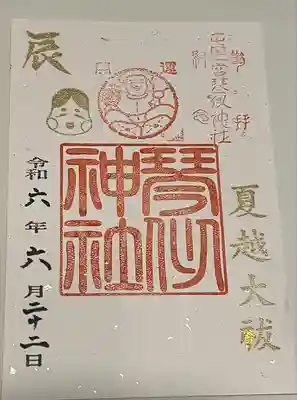 夏越大祓
琴似
神社
開運
辰
令和六年六月二十二日